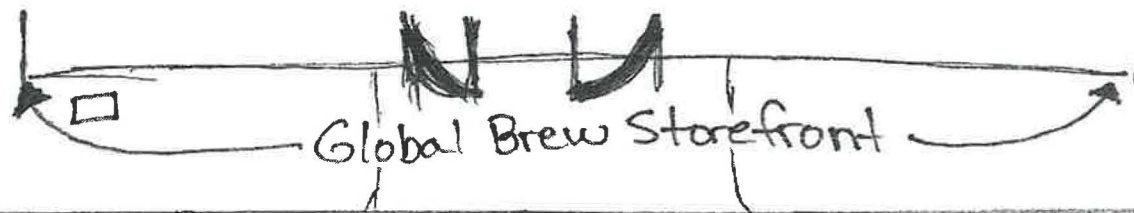 Global Brew Storefront